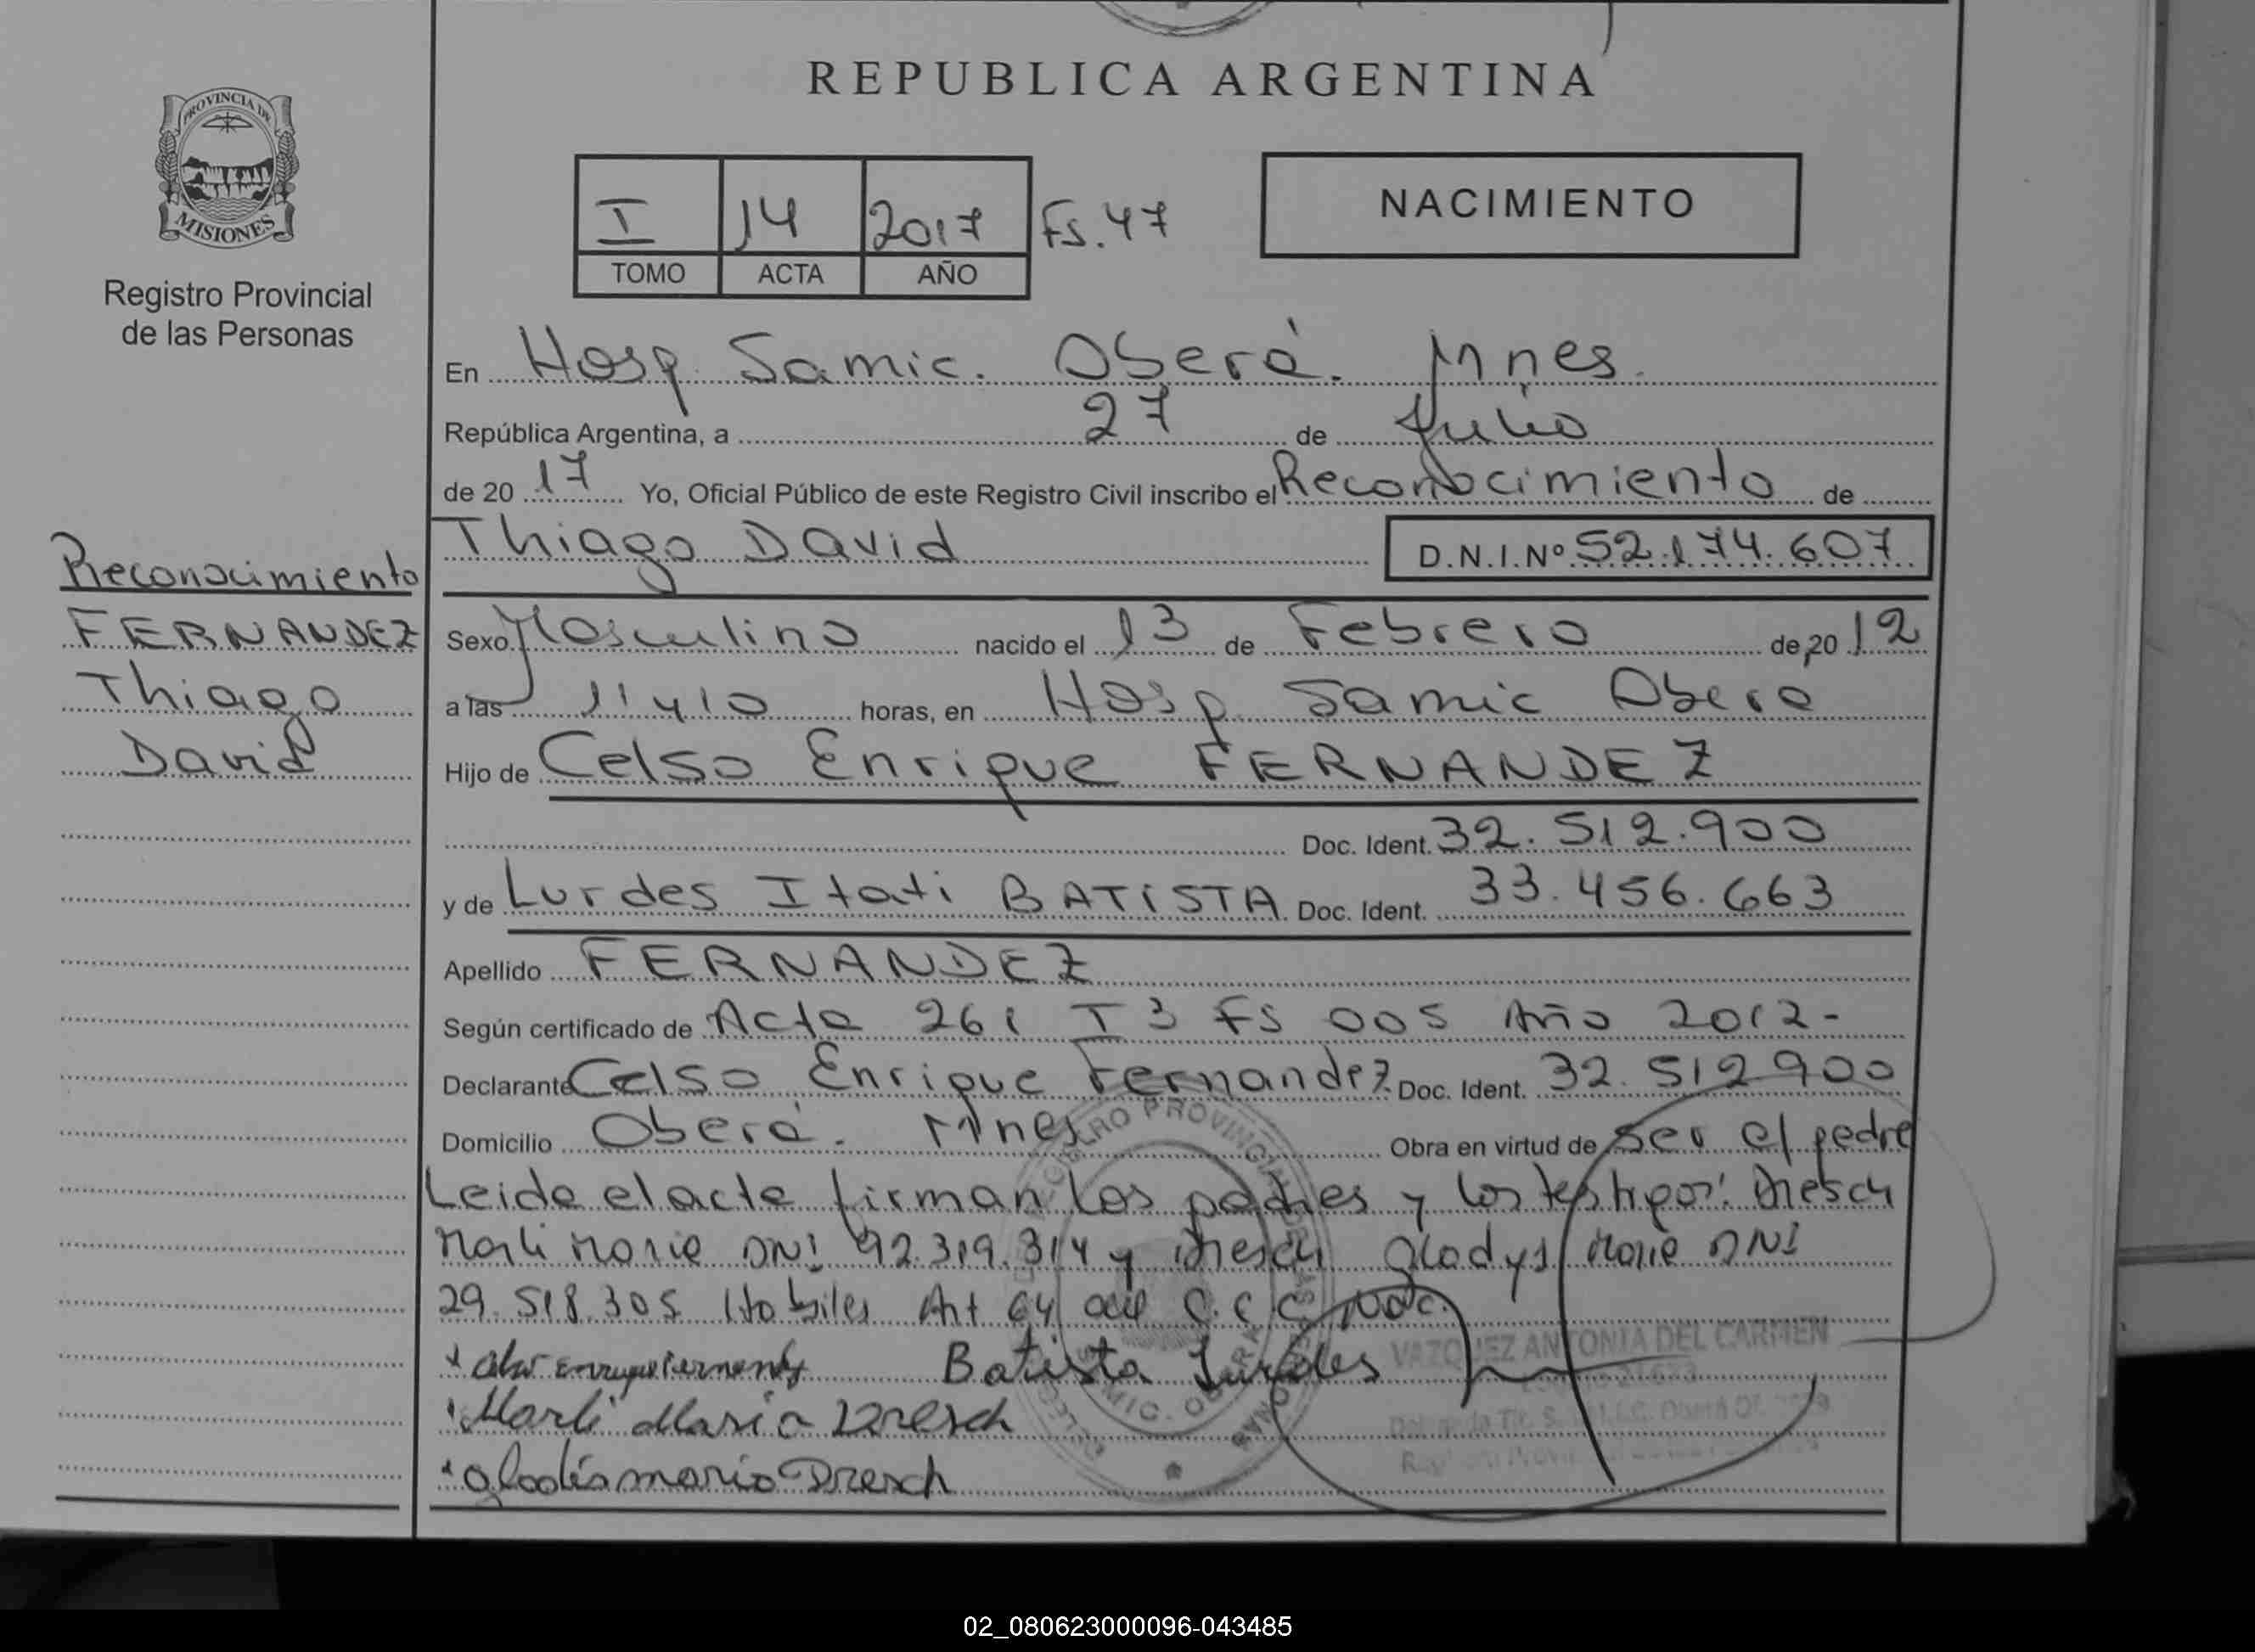 REPUBLICA ARGENTINA
PROVINCIA DE
MISIONES
Registro Provincial
de las Personas
I 14 2017 Fs. 47
TOMO ACTA AÑO
NACIMIENTO
En Hosp Samic. Oberá. Mnes.
República Argentina, a 27 de Julio
de 20 17 Yo, Oficial Público de este Registro Civil inscribo el Reconocimiento de
Thiago David D.N.I.Nº 52.174.607
Reconocimiento
FERNANDEZ
Thiago
David
Sexo Masculino nacido el 13 de Febrero de 20 12
a las 11:410 horas, en Hosp Samic Obera
Hijo de Celso Enrique FERNANDEZ
Doc. Ident. 32.512.900
y de Lurdes Itati BATISTA Doc. Ident. 33.456.663
Apellido FERNANDEZ
Según certificado de Acta 261 T 3 FS 005 Año 2012-
Declarante Celso Enrique Fernandez Doc. Ident. 32.512900
Domicilio Oberá. Mnes Obra en virtud de Ser el padre
Leida el acta firman los padres y los testigos: Dresch
Marli Maria DNI 92.319.314 y Dresch Gladys Maria DNI
29.518.305 Habiles Art 64 del C.C.C. Nac.
Enrique Fernandez Batista Lurdes
VAZQUEZ ANTONIA DEL CARMEN
Marli Maria Dresch
Gladis maria Dresch
02_080623000096-043485